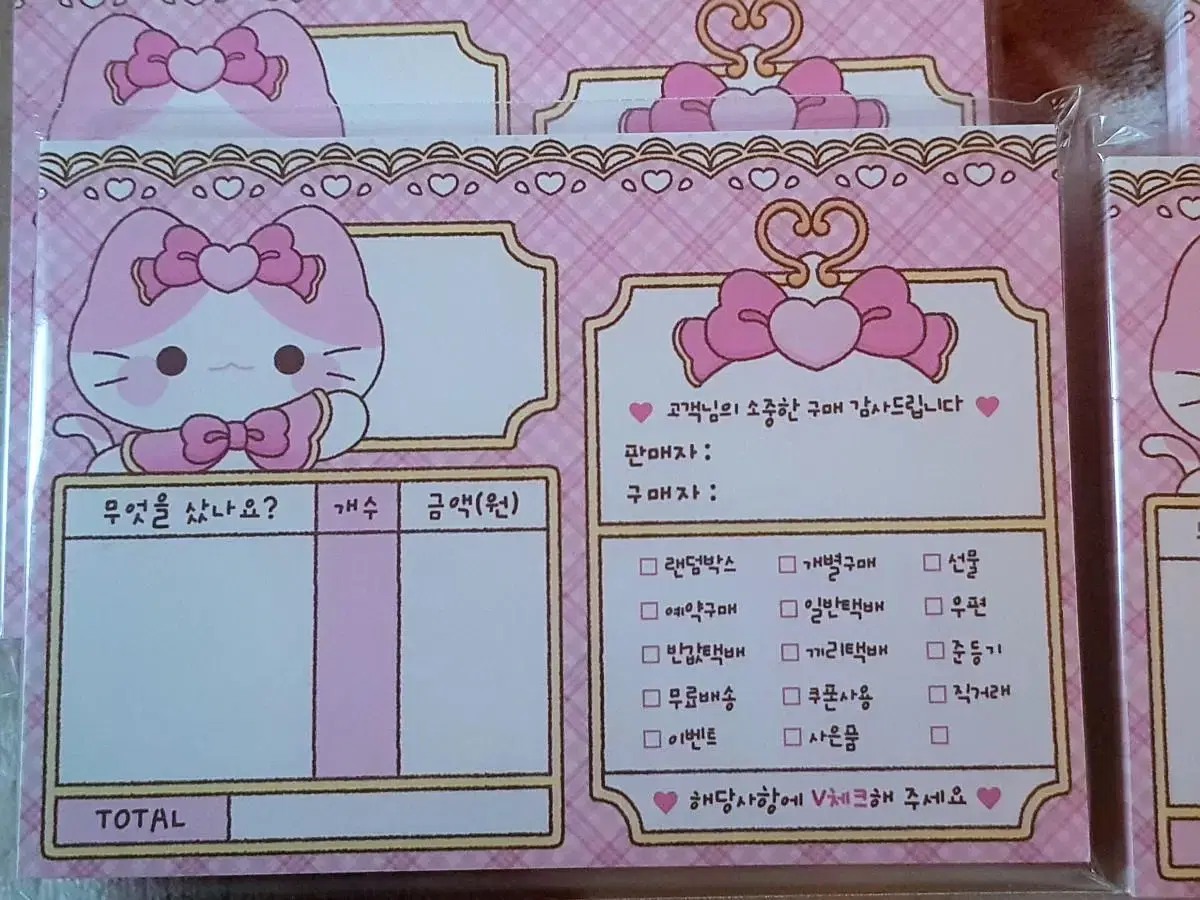 무엇을 샀나요? 개수 금액(원)
TOTAL
고객님의 소중한 구매 감사드립니다
판매자 :
구매자 :
랜덤박스 개별구매 선물
예약구매 일반택배 우편
반값택배 끼리택배 준등기
무료배송 쿠폰사용 직거래
이벤트 사은품
해당사항에 V체크해 주세요